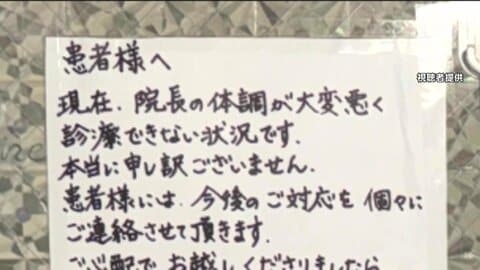 視聴者提供
患者様へ
現在、院長の体調が大変悪く
診療できない状況です.
本当に申し訳ございません.
患者様には、今後のご対応を 個々に
ご連絡させて頂きます.
ご心配で お越しくださりましたら